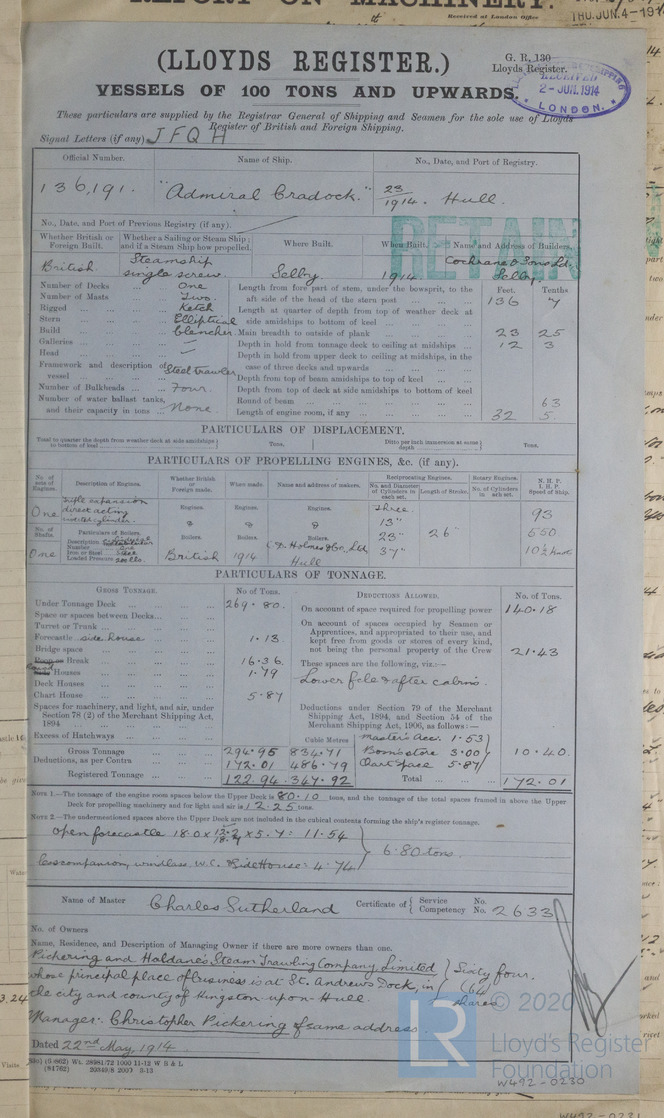 REPORT ON MACHINERY.
Received at London Office
THU. JUN. 4 - 1914
(LLOYDS REGISTER.)
G. R. 130
Lloyds Register.
RECEIVED
2 - JUN. 1914
LONDON.
VESSELS OF 100 TONS AND UPWARDS.
These particulars are supplied by the Registrar General of Shipping and Seamen for the sole use of Lloyds
Register of British and Foreign Shipping.
Signal Letters (if any) J F Q H
Official Number. Name of Ship. No., Date, and Port of Registry.
136,191. "Admiral Cradock." 23/1914. Hull.
No., Date, and Port of Previous Registry (if any).
RETAIN
Whether British or Foreign Built. Whether a Sailing or Steam Ship; and if a Steam Ship how propelled. Where Built. When Built. Name and Address of Builders.
British. Steamship single screw. Selby. 1914 Cochrane & Sons Ld. Selby.
Feet. Tenths
Number of Decks One Length from fore part of stem, under the bowsprit, to the aft side of the head of the stern post 136 7
Number of Masts Two.
Rigged Ketch Length at quarter of depth from top of weather deck at side amidships to bottom of keel
Stern Elliptical
Build Clencher. Main breadth to outside of plank 23 25
Galleries — Depth in hold from tonnage deck to ceiling at midships 12 3
Head — Depth in hold from upper deck to ceiling at midships, in the case of three decks and upwards
Framework and description of vessel Steel trawler
Depth from top of beam amidships to top of keel
Number of Bulkheads Four. Depth from top of deck at side amidships to bottom of keel
Number of water ballast tanks, and their capacity in tons None. Round of beam 63
Length of engine room, if any 32 5.
PARTICULARS OF DISPLACEMENT.
Total to quarter the depth from weather deck at side amidships to bottom of keel Tons. Ditto per inch immersion at same depth Tons.
PARTICULARS OF PROPELLING ENGINES, &c. (if any).
No of sets of Engines. Description of Engines. Whether British or Foreign made. When made. Name and address of makers. Reciprocating Engines. No. and Diameter of Cylinders in each set. Length of Stroke. Rotary Engines. No. of Cylinders in each set. N. H. P. I. H. P. Speed of Ship.
One Triple expansion direct acting inverted cylinder. Engines. Engines. Engines. Three. 13" 93
No. of Shafts. Particulars of Boilers. Boilers. Boilers. Boilers. 23" 26" 550
One Description Number One Iron or Steel Steel Loaded Pressure British 1914 C D Holmes & Co. Ltd Hull 37" 10½ knots
PARTICULARS OF TONNAGE.
GROSS TONNAGE. No of Tons. DEDUCTIONS ALLOWED. No. of Tons.
Under Tonnage Deck 269.80. On account of space required for propelling power 140.18
Space or spaces between Decks
Turret or Trunk
On account of spaces occupied by Seamen or Apprentices, and appropriated to their use, and kept free from goods or stores of every kind, not being the personal property of the Crew 21.43
Forecastle side house 1.13
Bridge space
Poop or Break 16.36 These spaces are the following, viz:—
Round Houses 1.79 Lower fcle & after cabins.
Deck Houses
Chart House 5.87
Spaces for machinery, and light, and air, under Section 78 (2) of the Merchant Shipping Act, 1894
Deductions under Section 79 of the Merchant Shipping Act, 1894, and Section 54 of the Merchant Shipping Act, 1906, as follows:—
Excess of Hatchways Cubic Metres Master's Acc. 1.53
Gross Tonnage 294.95 834.71 Bosn's store 3.00 10.40.
Deductions, as per Contra 172.01 486.79 Chart space 5.87
Registered Tonnage 122.94 347.92 Total 172.01
NOTE 1.—The tonnage of the engine room spaces below the Upper Deck is 80.10 tons, and the tonnage of the total spaces framed in above the Upper
Deck for propelling machinery and for light and air is 12.25 tons.
NOTE 2.—The undermentioned spaces above the Upper Deck are not included in the cubical contents forming the ship's register tonnage.
Open forecastle 18.0 x x 5.7: 11.54
6.80 tons.
Less companion, windlass, W.C. & Side House: 4.74
Name of Master Charles Sutherland Certificate of Service No.
Competency No. 2633
No. of Owners
Name, Residence, and Description of Managing Owner if there are more owners than one.
Pickering and Haldane's Steam Trawling Company Limited Sixty four
whose principal place of business is at St. Andrews Dock, in (64)
the city and county of Kingston upon Hull. shares
Manager: Christopher Pickering of same address.
Dated 22nd May, 1914
(5 862) Wt. 28981/72 1000 11-12 W B & L
(81762) 20349/8 2000 8-13
© 2020
LR Lloyd's Register
Foundation
W492-0230